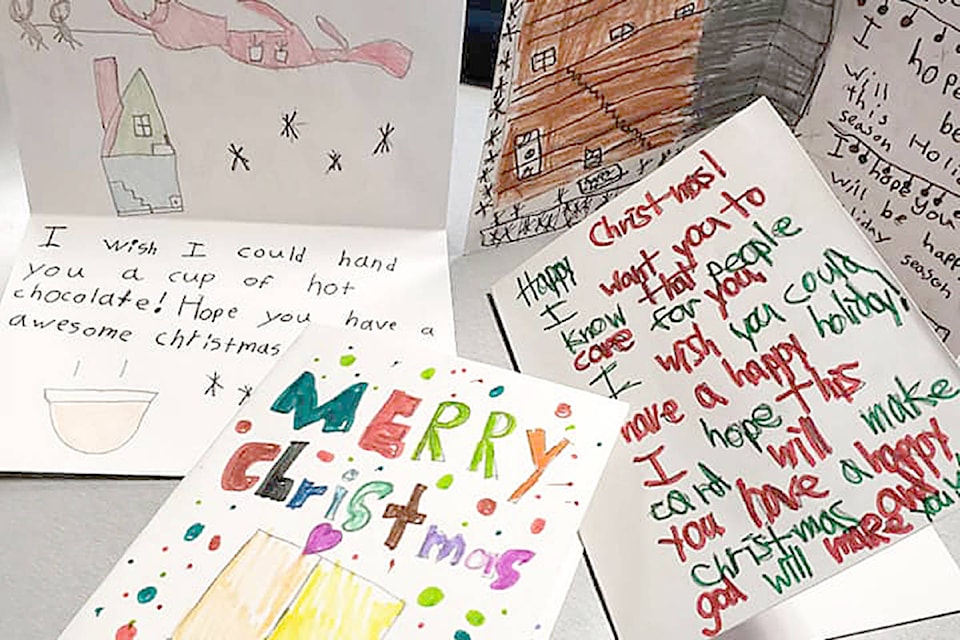 I wish I could hand
you a cup of hot
chocolate! Hope you have a
awesome christmas
MERRY
Christmas
Christmas!
Happy
I want you to
know that people
care for you,
I wish you could
have a happy holiday!
I hope this
card will make
you have a happy
Christmas and
god will make you
I hope
Will be
this
season Holi
I hope your
will be happ
liday
season